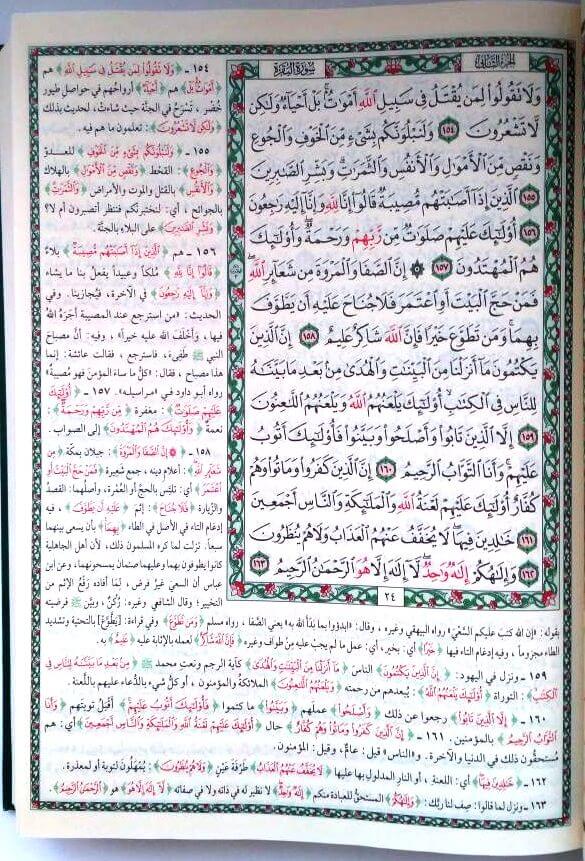 الجزء الثاني
سورة البقرة
وَلَا تَقُولُوا لِمَن يُقْتَلُ فِي سَبِيلِ اللَّهِ أَمْوَاتٌ بَلْ أَحْيَاءٌ وَلَٰكِن
لَّا تَشْعُرُونَ ١٥٤ وَلَنَبْلُوَنَّكُم بِشَيْءٍ مِّنَ الْخَوْفِ وَالْجُوعِ
وَنَقْصٍ مِّنَ الْأَمْوَٰلِ وَالْأَنفُسِ وَالثَّمَرَٰتِ وَبَشِّرِ الصَّٰبِرِينَ
١٥٥ الَّذِينَ إِذَا أَصَٰبَتْهُم مُّصِيبَةٌ قَالُوا إِنَّا لِلَّهِ وَإِنَّا إِلَيْهِ رَٰجِعُونَ
١٥٦ أُولَٰئِكَ عَلَيْهِمْ صَلَوَٰتٌ مِّن رَّبِّهِمْ وَرَحْمَةٌ وَأُولَٰئِكَ
هُمُ الْمُهْتَدُونَ ١٥٧ ۞ إِنَّ الصَّفَا وَالْمَرْوَةَ مِن شَعَائِرِ اللَّهِ
فَمَنْ حَجَّ الْبَيْتَ أَوِ اعْتَمَرَ فَلَا جُنَاحَ عَلَيْهِ أَن يَطَّوَّفَ
بِهِمَا وَمَن تَطَوَّعَ خَيْرًا فَإِنَّ اللَّهَ شَاكِرٌ عَلِيمٌ ١٥٨ إِنَّ الَّذِينَ
يَكْتُمُونَ مَا أَنزَلْنَا مِنَ الْبَيِّنَٰتِ وَالْهُدَىٰ مِن بَعْدِ مَا بَيَّنَّٰهُ
لِلنَّاسِ فِي الْكِتَٰبِ أُولَٰئِكَ يَلْعَنُهُمُ اللَّهُ وَيَلْعَنُهُمُ اللَّٰعِنُونَ
١٥٩ إِلَّا الَّذِينَ تَابُوا وَأَصْلَحُوا وَبَيَّنُوا فَأُولَٰئِكَ أَتُوبُ
عَلَيْهِمْ وَأَنَا التَّوَّابُ الرَّحِيمُ ١٦٠ إِنَّ الَّذِينَ كَفَرُوا وَمَاتُوا وَهُمْ
كُفَّارٌ أُولَٰئِكَ عَلَيْهِمْ لَعْنَةُ اللَّهِ وَالْمَلَٰئِكَةِ وَالنَّاسِ أَجْمَعِينَ
١٦١ خَٰلِدِينَ فِيهَا لَا يُخَفَّفُ عَنْهُمُ الْعَذَابُ وَلَا هُمْ يُنظَرُونَ
١٦٢ وَإِلَٰهُكُمْ إِلَٰهٌ وَٰحِدٌ لَّا إِلَٰهَ إِلَّا هُوَ الرَّحْمَٰنُ الرَّحِيمُ ١٦٣
٢٤
١٥٤ - ﴿وَلَا تَقُولُوا لِمَن يُقْتَلُ فِي سَبِيلِ اللَّهِ﴾ هم
﴿أَمْوَاتٌ بَلْ﴾ هم ﴿أَحْيَاءٌ﴾ أرواحُهم في حواصل طيور
خُضْر، تَسْرَحُ في الجنَّة حيث شاءتْ، لحديث بذلك
﴿وَلَٰكِن لَّا تَشْعُرُونَ﴾: تعلمون ما هم فيه.
١٥٥ - ﴿وَلَنَبْلُوَنَّكُم بِشَيْءٍ مِّنَ الْخَوْفِ﴾ للعدوِّ
﴿وَالْجُوعِ﴾: القحط ﴿وَنَقْصٍ مِّنَ الْأَمْوَٰلِ﴾ بالهلاك
﴿وَالْأَنفُسِ﴾ بالقتل والموت والأمراض ﴿وَالثَّمَرَٰتِ﴾
بالجوائح، أي: لنختبرنَّكم فننظر أتصبرون أم لا؟
﴿وَبَشِّرِ الصَّٰبِرِينَ﴾ على البلاءِ بالجنَّة.
١٥٦ - هم ﴿الَّذِينَ إِذَا أَصَٰبَتْهُم مُّصِيبَةٌ﴾ بلاءٌ
﴿قَالُوا إِنَّا لِلَّهِ﴾ مُلكاً وعبيداً يفعلُ بنا ما يشاء
﴿وَإِنَّا إِلَيْهِ رَٰجِعُونَ﴾ في الآخرة، فيُجازينا. وفي
الحديث: «من استرجع عند المصيبة آجَرَهُ اللهُ
فيها، وأخْلَفَ الله عليه خيراً»، وفيه: أنَّ مصباحَ
النبي ﷺ طُفِىءَ، فاسترجع، فقالت عائشة: إنما
هذا مصباح، فقال: «كلُّ ما ساءَ المؤمنَ فهو مُصيبةٌ»
رواه أبو داود في «مراسيله». ١٥٧ - ﴿أُولَٰئِكَ
عَلَيْهِمْ صَلَوَٰتٌ﴾: مغفرة ﴿مِّن رَّبِّهِمْ وَرَحْمَةٌ﴾:
نعمةٌ ﴿وَأُولَٰئِكَ هُمُ الْمُهْتَدُونَ﴾ إلى الصواب.
١٥٨ - ﴿۞ إِنَّ الصَّفَا وَالْمَرْوَةَ﴾: جبلان بمكَّة ﴿مِن
شَعَائِرِ اللَّهِ﴾: أعلام دينه، جمع شعيرة ﴿فَمَنْ حَجَّ الْبَيْتَ أَوِ
اعْتَمَرَ﴾ أي: تلبَّس بالحجِّ أو العُمْرة، وأصلُهما: القصدُ
والزِّيارة ﴿فَلَا جُنَاحَ﴾: إثمَ ﴿عَلَيْهِ أَن يَطَّوَّفَ﴾، فيه
إدغام التاء في الأصل في الطاء ﴿بِهِمَا﴾ بأن يسعى بينهما
سبعاً. نزلت لما كره المسلمون ذلك، لأن أهل الجاهلية
كانوا يطوفون بهما وعليهما صنمان يمسحونهما، وعن ابن
عباس أن السعيَ غيرُ فرض، لِمَا أفاده رَفْعُ الإثم من
التخيير؛ وقال الشافعي وغيره: رُكْنٌ، وبيَّن ﷺ فرضيته
بقوله: «فإن الله كتبَ عليكم السَّعْيَ» رواه البيهقي وغيره، وقال: «ابدؤوا بما بَدَأَ الله به» يعني الصَّفا، رواه مسلم ﴿وَمَن تَطَوَّعَ﴾ وفي قراءة: [يَطَّوَّعْ] بالتحتية وتشديد
الطاء مجزوماً، وفيه إدغام التاء فيها ﴿خَيْرًا﴾ أي: بخير، أي: عمل ما لم يجب عليه من طواف وغيره ﴿فَإِنَّ اللَّهَ شَاكِرٌ﴾ لعمله بالإثابة عليه ﴿عَلِيمٌ﴾ به.
١٥٩ - ونزل في اليهود: ﴿إِنَّ الَّذِينَ يَكْتُمُونَ﴾ الناسَ ﴿مَا أَنزَلْنَا مِنَ الْبَيِّنَٰتِ وَالْهُدَىٰ﴾ كآية الرجم ونعت محمد ﷺ ﴿مِن بَعْدِ مَا بَيَّنَّٰهُ لِلنَّاسِ فِي
الْكِتَٰبِ﴾: التوراة ﴿أُولَٰئِكَ يَلْعَنُهُمُ اللَّهُ﴾: يُبعدهم من رحمته ﴿وَيَلْعَنُهُمُ اللَّٰعِنُونَ﴾: الملائكةُ والمؤمنون، أو كلُّ شيء بالدُّعاء عليهم باللَّعنة.
١٦٠ - ﴿إِلَّا الَّذِينَ تَابُوا﴾: رجعوا عن ذلك ﴿وَأَصْلَحُوا﴾ عملَهم ﴿وَبَيَّنُوا﴾ ما كتموا ﴿فَأُولَٰئِكَ أَتُوبُ عَلَيْهِمْ﴾: أقبلُ توبتَهم ﴿وَأَنَا
التَّوَّابُ الرَّحِيمُ﴾ بالمؤمنين. ١٦١ - ﴿إِنَّ الَّذِينَ كَفَرُوا وَمَاتُوا وَهُمْ كُفَّارٌ﴾ حال ﴿أُولَٰئِكَ عَلَيْهِمْ لَعْنَةُ اللَّهِ وَالْمَلَٰئِكَةِ وَالنَّاسِ أَجْمَعِينَ﴾ أي: هم
مُستحقُّون ذلك في الدنيا والآخرة. و«الناس» قيل: عامٌّ، وقيل: المؤمنون.
١٦٢ - ﴿خَٰلِدِينَ فِيهَا﴾ أي: اللعنةِ، أو النار المدلول بها عليها ﴿لَا يُخَفَّفُ عَنْهُمُ الْعَذَابُ﴾ طَرْفَةَ عَيْنٍ ﴿وَلَا هُمْ يُنظَرُونَ﴾: يُمْهَلُون لتوبة أو لمعذرة.
١٦٣ - ونزل لما قالوا: صِف لنا ربَّك: ﴿وَإِلَٰهُكُمْ﴾ المستحقُّ للعبادة منكم ﴿إِلَٰهٌ وَٰحِدٌ﴾ لا نظير له في ذاته ولا في صفاته ﴿لَّا إِلَٰهَ إِلَّا هُوَ﴾ هو ﴿الرَّحْمَٰنُ الرَّحِيمُ﴾.